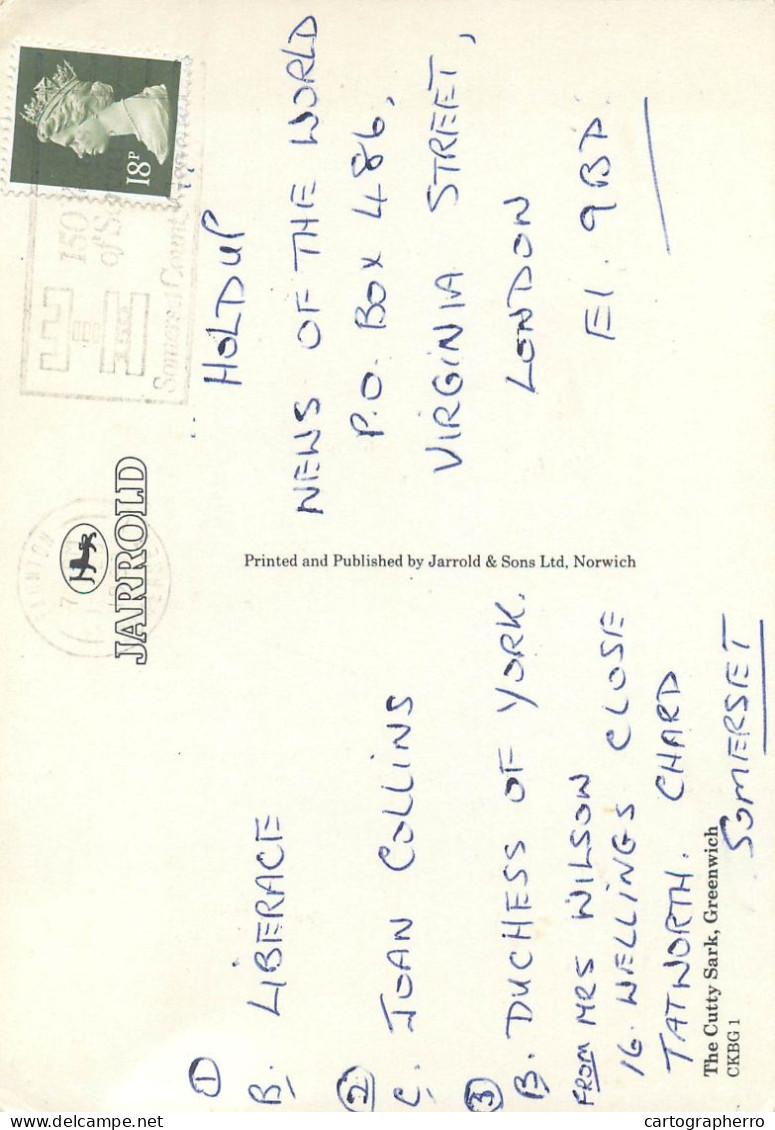 ①
B. LIBERACE
②
C. JOAN COLLINS
③
B. DUCHESS OF YORK.
FROM MRS WILSON
16. WELLINGS CLOSE
TATWORTH. CHARD
SOMERSET
The Cutty Sark, Greenwich
CKBG 1
JARROLD
Printed and Published by Jarrold & Sons Ltd, Norwich
18P
150
of
Somerset County
HOLDUP
NEWS OF THE WORLD
P.O. BOX 486,
VIRGINIA STREET,
LONDON
E1. 9BD.
cartographerro